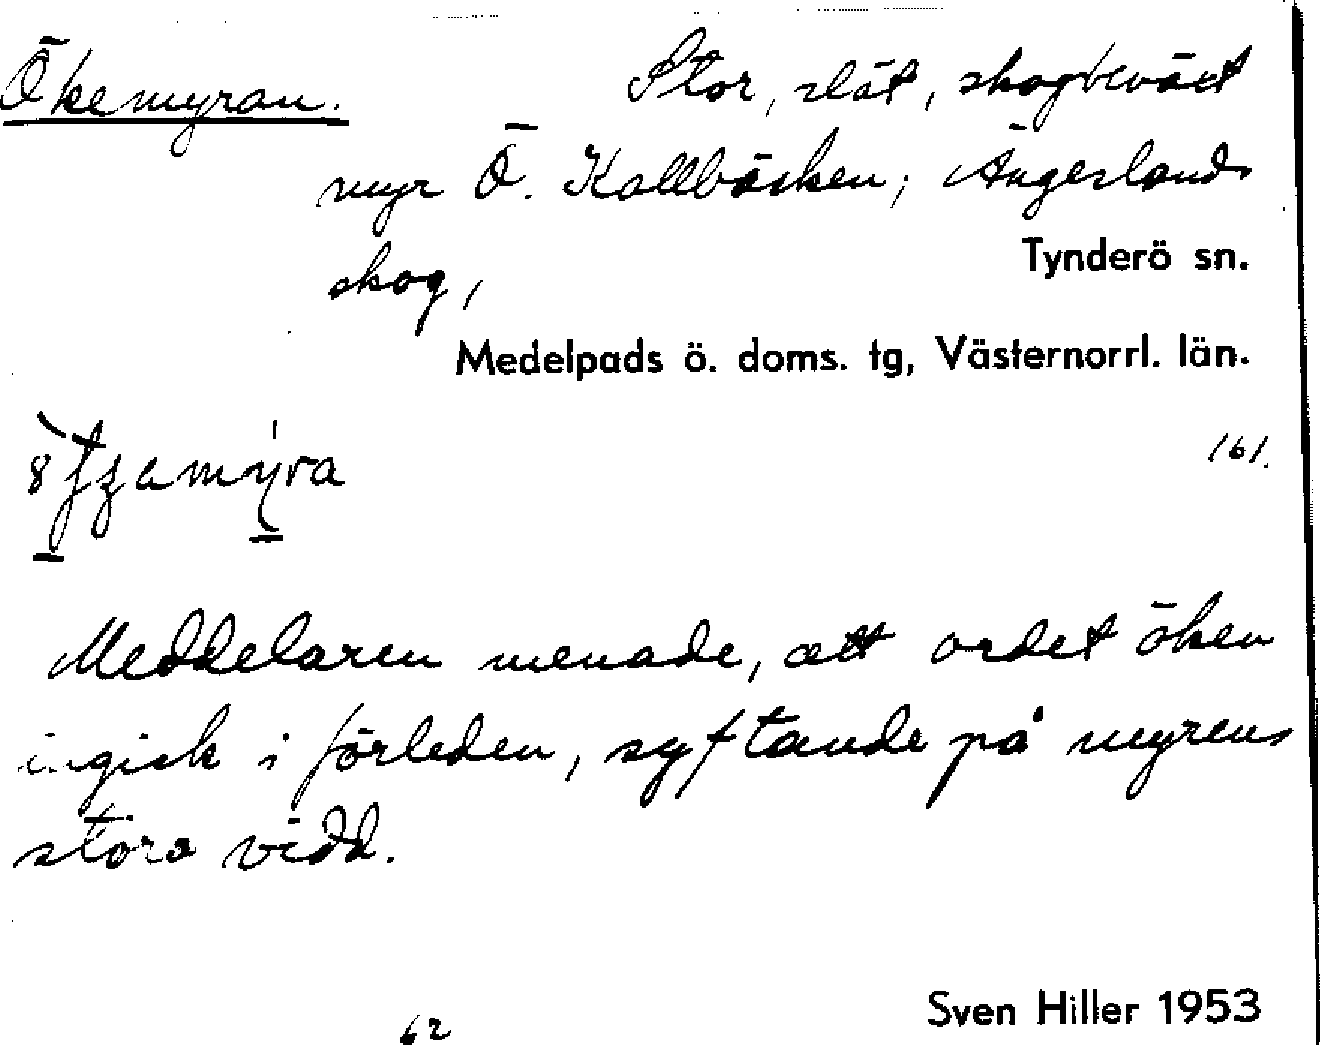 Ökemyran. Stor, slät, skogbeväxt
myr Ö. Kallbäcken; Ängerlands
skog, Tynderö sn.
Medelpads ö. doms. tg, Västernorrl. län.
161.
Meddelaren menade, att ordet öken
ingick i förleden, syftande på myrens
stora vidd.
Sven Hiller 1953
62